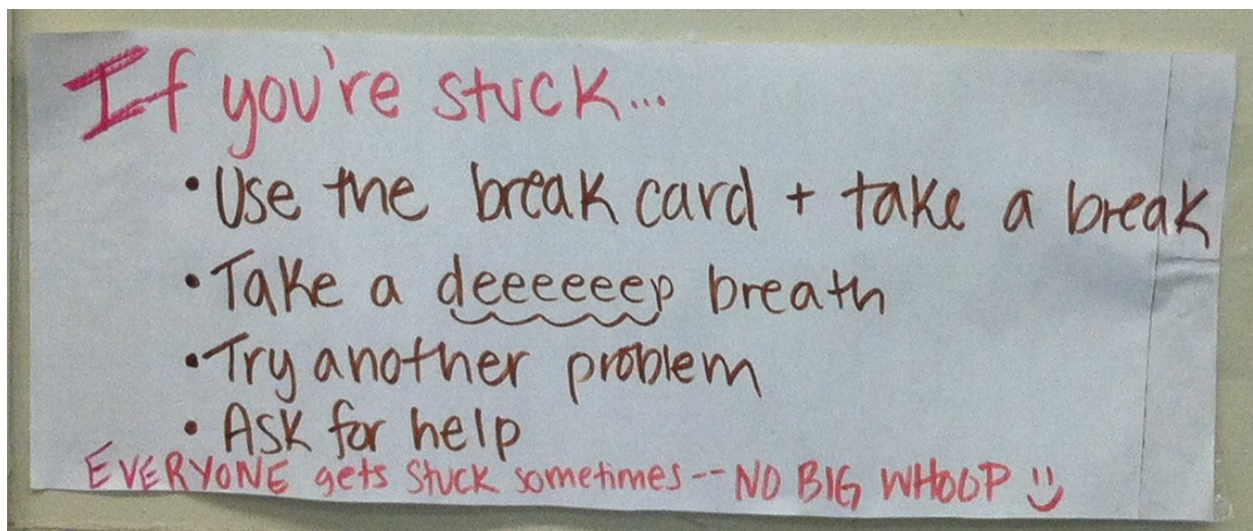 If you're stuck...
• Use the break card + take a break
• Take a deeeeeep breath
• Try another problem
• Ask for help
EVERYONE gets stuck sometimes -- NO BIG WHOOP :)